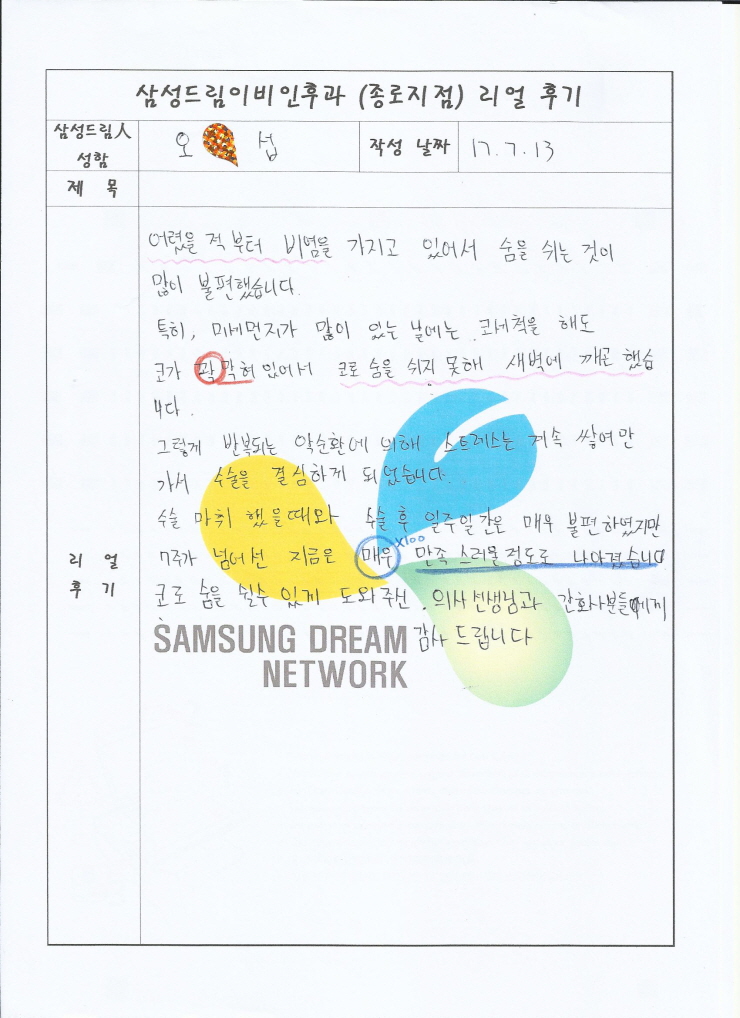 삼성드림이비인후과 (종로지점) 리얼 후기
삼성드림人
성함
오 섭
작성 날짜
17.7.13
제 목
어렸을 적부터 비염을 가지고 있어서 숨을 쉬는 것이
많이 불편했습니다.
특히, 미세먼지가 많이 있는 날에는 코세척을 해도
코가 꽉 막혀있어서 코로 숨을 쉬지 못해 새벽에 깨곤 했습
니다.
그렇게 반복되는 악순환에 의해 스트레스는 계속 쌓여만
가서 수술을 결심하게 되었습니다.
수술 마취 했을때와 수술 후 일주일간은 매우 불편하였지만
x100
7주가 넘어선 지금은 매우 만족스러울정도로 나아졌습니다
코로 숨을 쉴수 있게 도와주신, 의사선생님과 간호사분들에게
감사 드립니다
리 얼
후 기
SAMSUNG DREAM
NETWORK